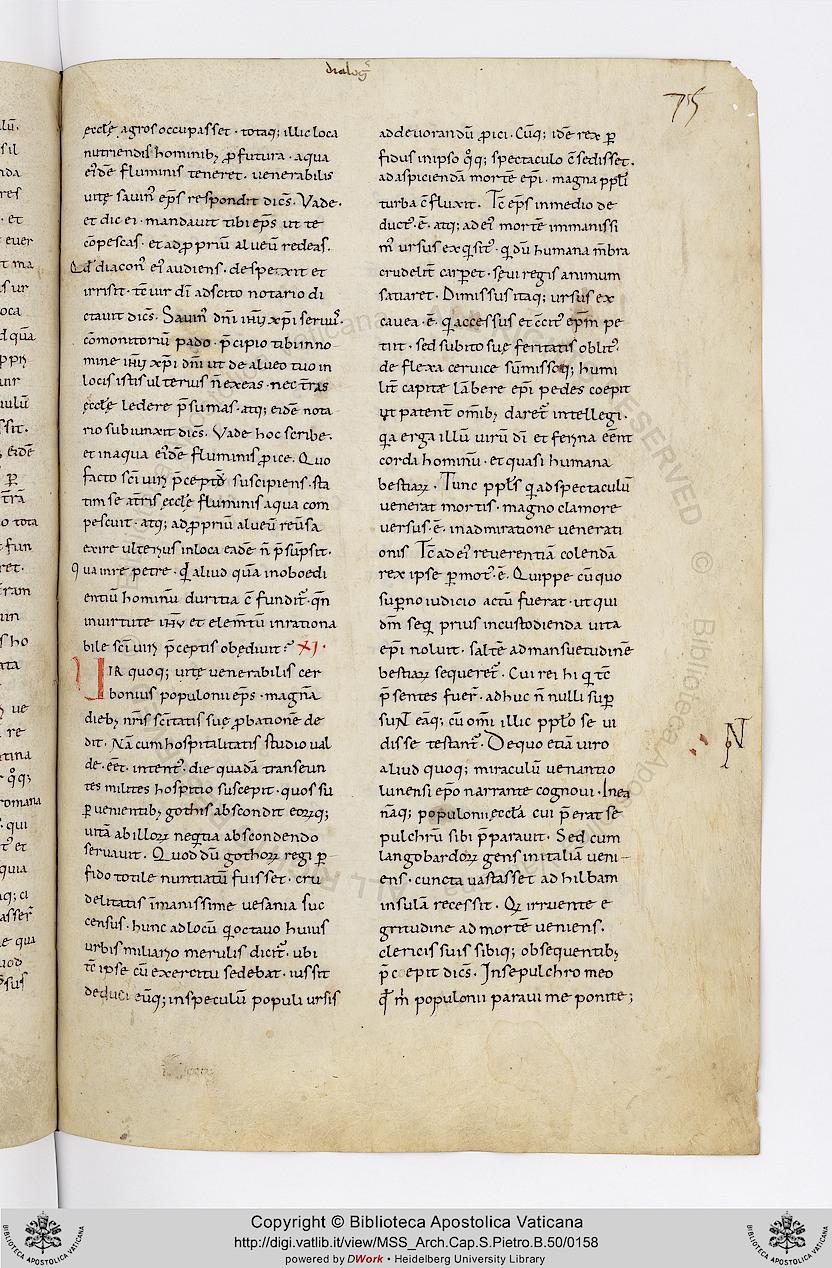 dialog̅
75
eccłę agros occupasset · totaq; illic loca
nutriendis hominib; ꝓfutura · aqua
ei'dē fluminis teneret · venerabilis
vitę savin' eps̄ respondit dic̄s · Vade ·
et dic ei · mandavit tibi eps̄ ut te
cōpescas · et adꝓpriū alveū redeas ·
Qd̄ diacon' ei' audiens · despexit et
irrisit · tc̄ vir dī adscito notario di
ctavit dic̄s · Savin' dn̄i ihū xp̄i servus ·
cōmonitoriū pado · p̄cipio tibi inno
mine ihū xp̄i dn̄i ut de alveo tuo in
locis istis ulterius n̄ exeas · nec t̄ras
eccłę ledere p̄sumas · atq; eidē nota
rio subiunxit dic̄s · Vade hoc scribe ·
et in aqua ei'dē fluminis ꝓice · Quo
facto sc̄i viri p̄ceptū suscipiens · sta
tim se at̄ris eccłę fluminis aqua com
pescuit · atq; adꝓpriū alveū reūsa
exire ulterius in loca eadē n̄ p̄sūpsit ·
qua in re petre · qd̄ aliud quā inoboedi
entiū hominū duritia c̄fundit̄ · qn̄
in virtute ihū et elem̄tū inrationa
bile sc̄i viri p̄ceptis obędivit · XI ·
VIR quoq; vitę venerabilis cer
bonius populonii eps̄ · magnā
dieb; nr̄is sc̄itatis suę ꝓbationē de
dit · Nā cum hospitalitatis studio val
de · eēt · intent' · die quadā transeun
tes milites hospitio suscepit · quos su
ꝑvenientib; gothis abscondit eoꝝq;
vitā ab illoꝝ neqtia abscondendo
servavit · Quod dū gothoꝝ regi ꝑ
fido totile nuntiatū fuisset · cru
delitatis īmanissime vesania suc
census · hunc ad locū qi octavo huius
urbis miliario merulis dicit̄ · ubi
tc̄ ipse cū exercitu sedebat · iussit
deduci eūq; in speculū populi ursis
ad devorandū ꝓici · Cūq; idē rex ꝑ
fidus in ipso qq; spectaculo c̄sedisset ·
ad aspiciendā mortē epi · magna ppłi
turba c̄fluxit · Tc̄ eps̄ in medio de
duct' · ē · atq; ad ei' mortē immanissi
m' ursus exqsit' · qi dū humana mēbra
crudelit̄ carꝑet · sęvi regis animum
satiaret · Dimissus itaq; ursus ex
cavea · ē · qi accessus et c̄cit' epm̄ pe
tiit · sed subito suę feritatis oblit'
deflexa cervice sūmissoq; humi
lit̄ capite lābere epi pedes coepit
ut patent̄ om̄ib; daret̄ intellegi ·
qa erga illū virū dī et ferina eēnt
corda hominū · et quasi humana
bestiaꝝ · Tunc ppłs qi ad spectaculū
venerat mortis · magno clamore
versus · ē · in admiratione venerati
onis · Tc̄ ad ei' reverentiā colendā
rex ipse ꝑmot' · ē · Quippe cū quo
sup̄no iudicio actū fuerat · ut qui
dm̄ seqi prius in custodienda vita
epi noluit · saltē ad mansuetudinē
bestiaꝝ sequeret̄ · Cui rei hi qi tc̄
p̄sentes fuer̄ · adhuc n̄nulli suꝑ
suN̄ eāq; cū om̄i illic ppło se vi
disse testant̄ · De quo etiā viro
aliud quoq; miraculū venantio
lunensi epo narrante cognovi · In ea
nāq; populonii eccła cui p̄erat se
pulchrū sibi p̄paravit · Sed cum
langobardoꝝ gens in italiā veni
ens · cuncta vastasset ad hilbam
insulā recessit · Qi irruente e
gritudine ad mortē veniens ·
clericis suis sibiq; obsequentib;
p̄cepit dic̄s · In sepulchro meo
qd̄ m̄ populonii paravi me ponite ;
N
Copyright © Biblioteca Apostolica Vaticana
http://digi.vatlib.it/view/MSS_Arch.Cap.S.Pietro.B.50/0158
powered by DWork • Heidelberg University Library
BIBLIOTECA APOSTOLICA VATICANA
BIBLIOTECA APOSTOLICA VATICANA